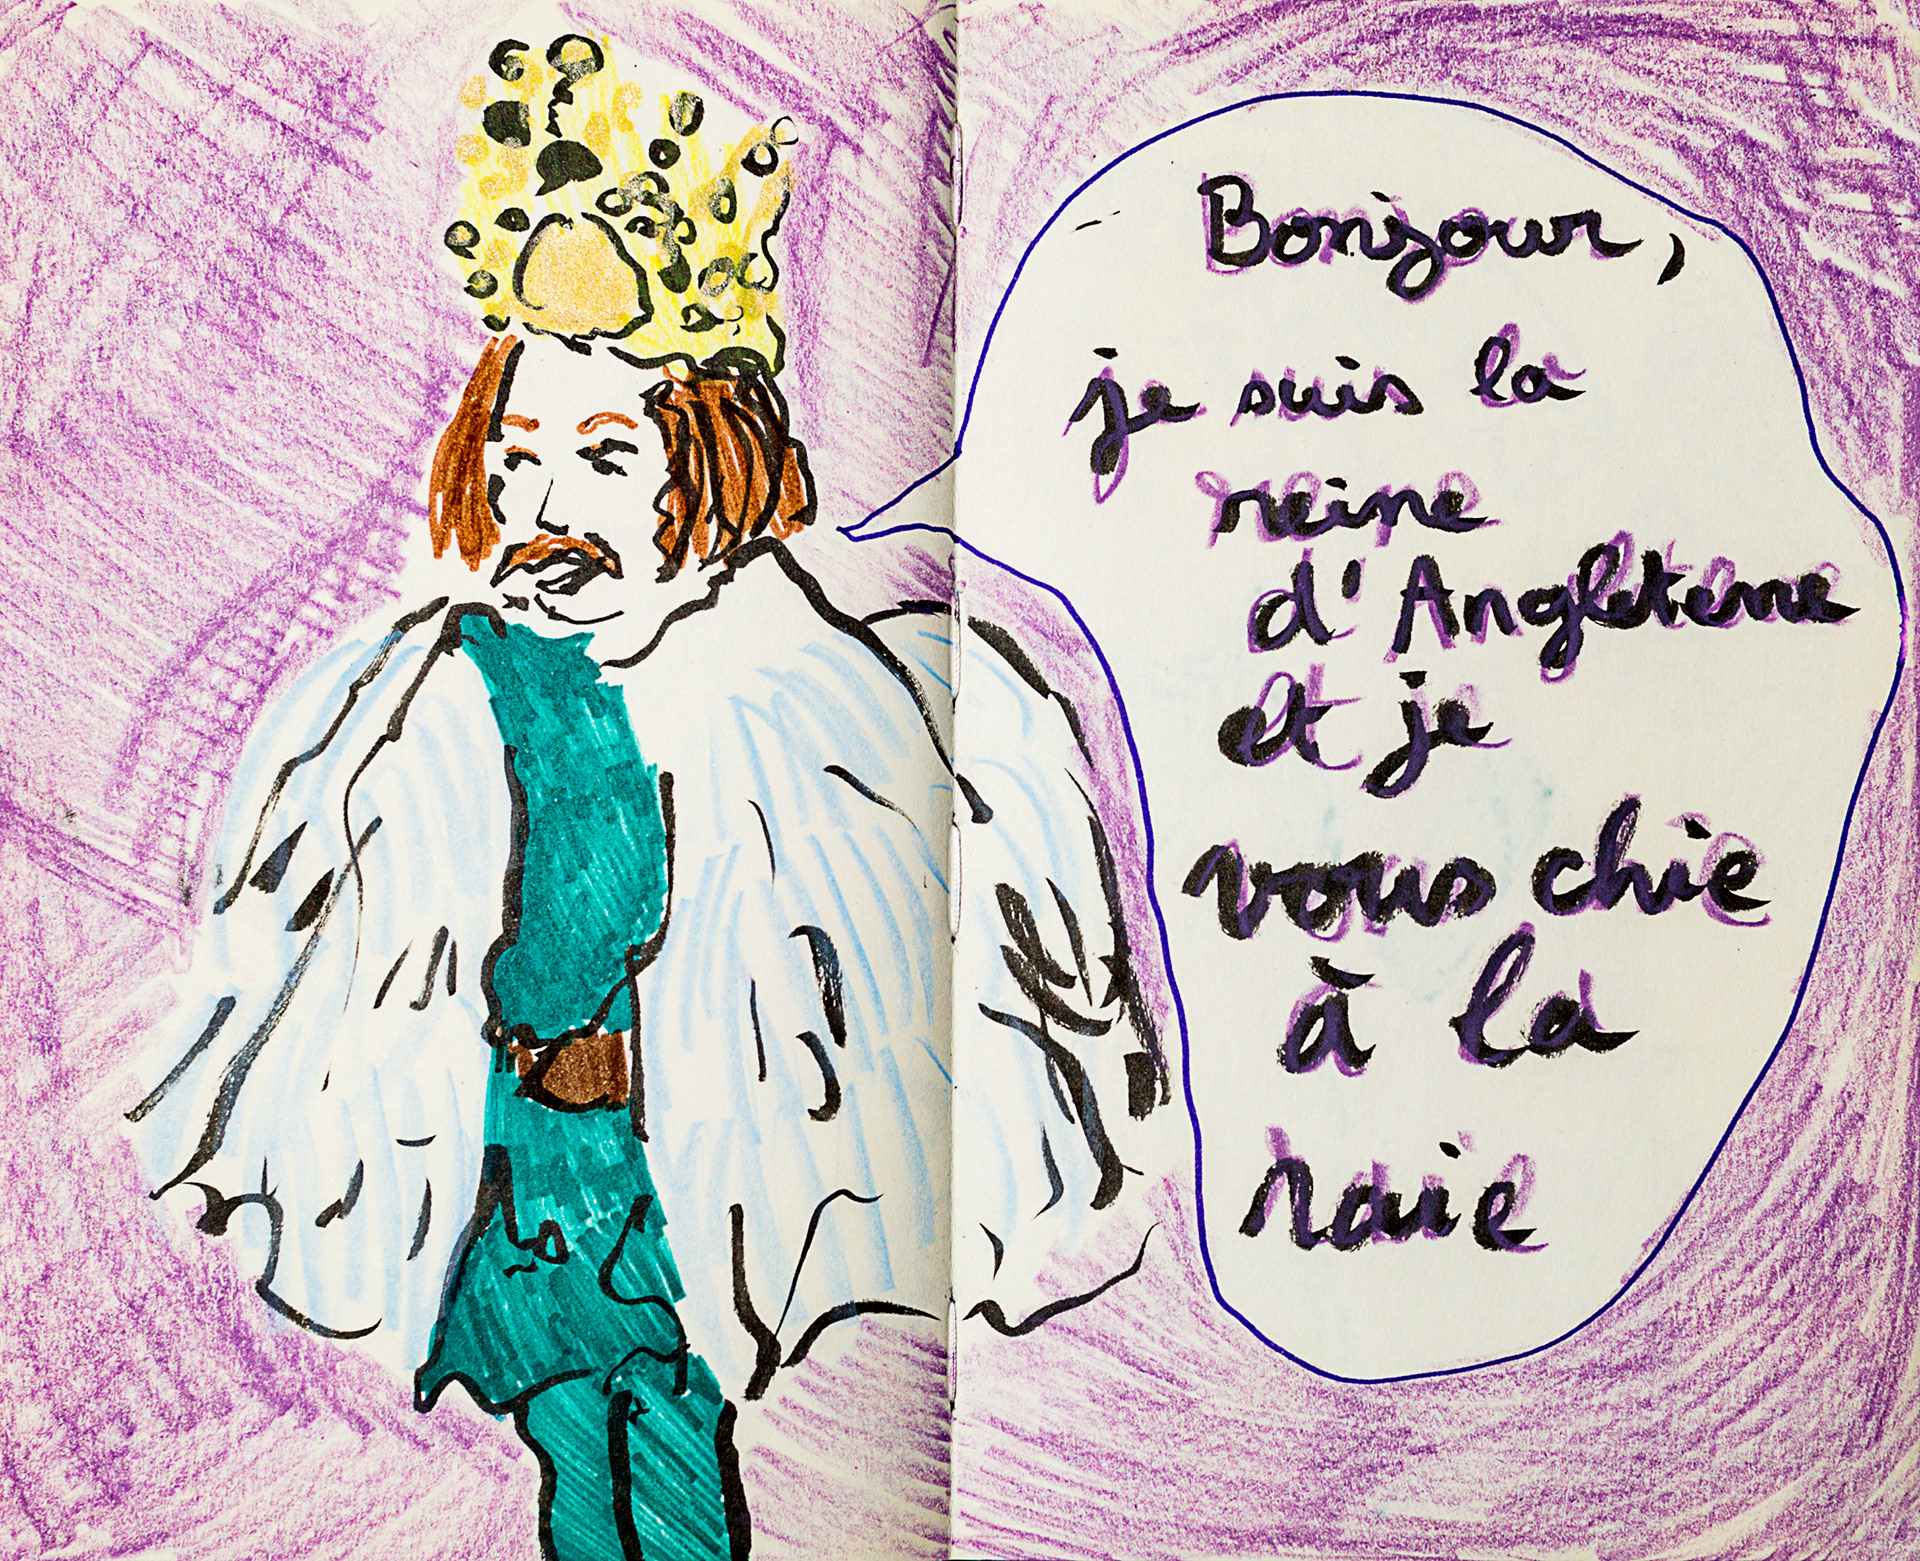 Bonjour,
je suis la
reine
d'Angleterre
et je
vous chie
à la
raie